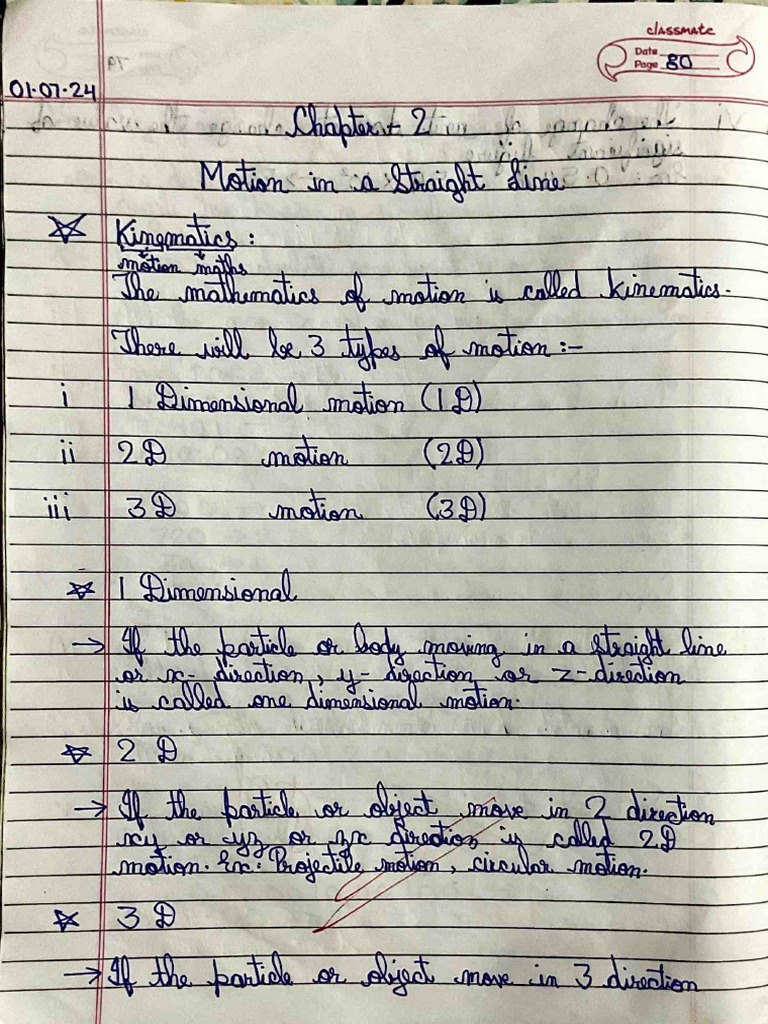 classmate
Date
Page 80
01-07-24
Chapter - 2
Motion in a Straight Line
Kinematics :
motion maths
The mathematics of motion is called kinematics.
There will be 3 types of motion :-
i 1 Dimensional motion (1D)
ii 2D motion (2D)
iii 3D motion (3D)
1 Dimensional
→ If the particle or body moving in a straight line
or x- direction, y- direction or z-direction
is called one dimensional motion.
2 D
→ If the particle or object move in 2 direction
xy or yz or zx direction is called 2D
motion. Ex: Projectile motion, circular motion.
3 D
→ If the particle or object move in 3 direction